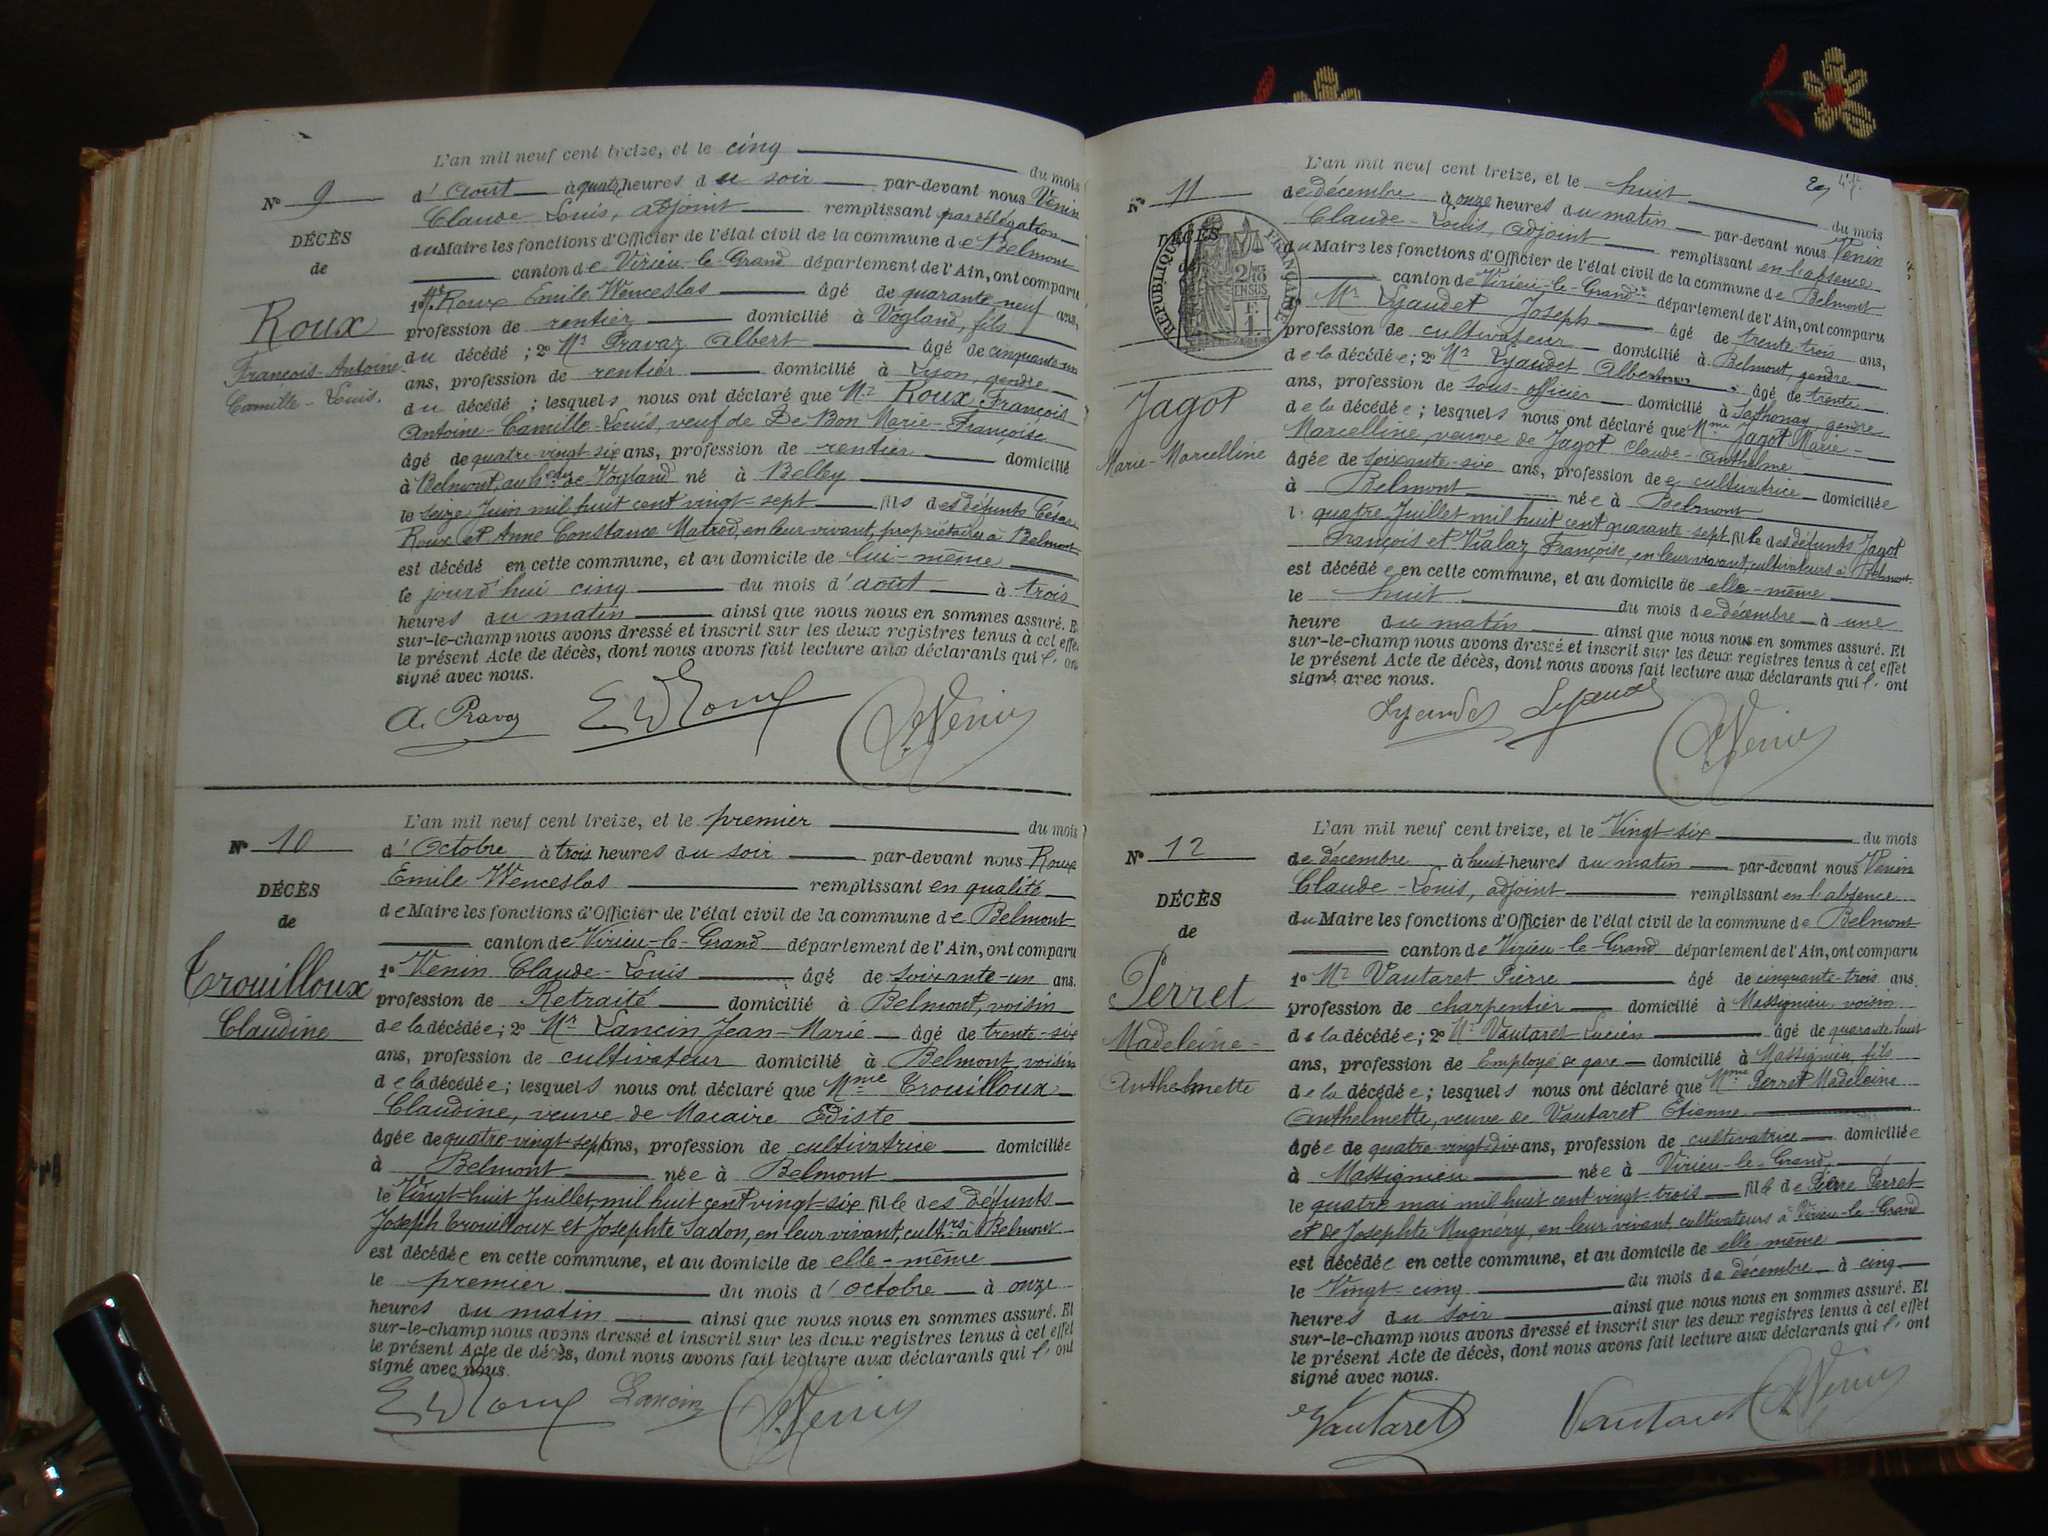 L'an mil neuf cent treize, et le cinq du mois
N° 9
d'Août à quatre heures du soir par-devant nous Vénin
Claude Louis, adjoint remplissant par délégation
DÉCÈS
du Maire les fonctions d'Officier de l'état civil de la commune de Belmont
de
canton de Virieu-le-Grand département de l'Ain, ont comparu
1° Mr Roux Emile Wenceslas âgé de quarante neuf ans,
Roux
profession de rentier domicilié à Vogland, fils
du décédé; 2° Mr Pravaz Albert âgé de cinquante-un
François-Antoine
ans, profession de rentier domicilié à Lyon, gendre
Camille-Louis.
du décédé; lesquels nous ont déclaré que Mr Roux François
Antoine-Camille-Louis, veuf de De Bon Marie-Françoise
âgé de quatre-vingt-six ans, profession de rentier domicilié
à Belmont, au heau de Vogland né à Belley
le seize Juin mil huit cent vingt-sept fils des défunts César
Roux et Anne Constance Matred, en leur vivant, propriétaires à Belmont
est décédé en cette commune, et au domicile de lui-même
le jourd'hui cinq du mois d'août à trois
heures du matin ainsi que nous nous en sommes assuré. Et
sur-le-champ nous avons dressé et inscrit sur les deux registres tenus à cet effet
le présent Acte de décès, dont nous avons fait lecture aux déclarants qui l'ont
signé avec nous.
A. Pravaz E W Roux Vénin
L'an mil neuf cent treize, et le premier du mois
N° 10
d'Octobre à trois heures du soir par-devant nous Roux
Emile Wenceslas remplissant en qualité
DÉCÈS
de Maire les fonctions d'Officier de l'état civil de la commune de Belmont
de
canton de Virieu-le-Grand département de l'Ain, ont comparu
1° Vénin Claude-Louis âgé de soixante-un ans.
Trouilloux
profession de Retraité domicilié à Belmont, voisin
Claudine
de la décédée; 2° Mr Lancin Jean-Marie âgé de trente-six
ans, profession de cultivateur domicilié à Belmont, voisin
de la décédée; lesquels nous ont déclaré que Mme Trouilloux
Claudine, veuve de Macaire Ediste
âgée de quatre-vingt-sept ans, profession de cultivatrice domiciliée
à Belmont née à Belmont
le Vingt-huit Juillet, mil huit cent vingt-six fille des défunts
Joseph Trouilloux et Josephte Sadon, en leur vivant, cultrs à Belmont
est décédée en cette commune, et au domicile de elle-même
le premier du mois d'octobre à onze
heures du matin ainsi que nous nous en sommes assuré. Et
sur-le-champ nous avons dressé et inscrit sur les deux registres tenus à cet effet
le présent Acte de décès, dont nous avons fait lecture aux déclarants qui l'ont
signé avec nous.
E W Roux Lancin Vénin
L'an mil neuf cent treize, et le huit du mois
N° 11
de décembre à onze heures du matin par-devant nous Vénin
Claude-Louis, adjoint remplissant en l'absence
DÉCÈS
du Maire les fonctions d'Officier de l'état civil de la commune de Belmont
de
RÉPUBLIQUE FRANÇAISE
canton de Virieu-le-Grand département de l'Ain, ont comparu
1° Mr Lyaudet Joseph âgé de trente-trois ans,
profession de cultivateur domicilié à Belmont, gendre
de la décédée; 2° Mr Lyaudet Albert âgé de trente
Jagot
ans, profession de sous-officier domicilié à Sathonay, gendre
de la décédée; lesquels nous ont déclaré que Mme Jagot Marie-
Marie-Marcelline
Marcelline, veuve de Jagot Claude-Anthelme
âgée de soixante-six ans, profession de cultivatrice domiciliée
à Belmont née à Belmont
l quatre Juillet mil huit cent quarante-sept fille des défunts Jagot
François et Vialaz Françoise, en leur vivant, cultivateurs à Belmont
est décédée en cette commune, et au domicile de elle-même
le huit du mois de décembre à une
heure du matin ainsi que nous nous en sommes assuré. Et
sur-le-champ nous avons dressé et inscrit sur les deux registres tenus à cet effet
le présent Acte de décès, dont nous avons fait lecture aux déclarants qui l'ont
signé avec nous.
Lyaudet Lyaudet Vénin
L'an mil neuf cent treize, et le Vingt-six du mois
N° 12
de décembre à huit heures du matin par-devant nous Vénin
Claude-Louis, adjoint remplissant en l'absence
DÉCÈS
du Maire les fonctions d'Officier de l'état civil de la commune de Belmont
de
canton de Virieu-le-Grand département de l'Ain, ont comparu
1° Mr Vautaret Pierre âgé de cinquante-trois ans.
Perret
profession de charpentier domicilié à Massignieu, voisin
Madeleine-
de la décédée; 2° Mr Vautaret Lucien âgé de quarante-huit
ans, profession de Employé de gare domicilié à Massignieu, fils
Anthelmette
de la décédée; lesquels nous ont déclaré que Mme Perret Madeleine
Anthelmette, veuve de Vautaret Etienne
âgée de quatre-vingt-dix ans, profession de cultivatrice domiciliée
à Massignieu née à Virieu-le-Grand,
le quatre mai mil huit cent vingt-trois fille de Pierre Perret
et de Josephte Mugnery, en leur vivant, cultivateurs à Virieu-le-Grand
est décédée en cette commune, et au domicile de elle-même
le Vingt-cinq du mois de décembre à cinq
heures du soir ainsi que nous nous en sommes assuré. Et
sur-le-champ nous avons dressé et inscrit sur les deux registres tenus à cet effet
le présent Acte de décès, dont nous avons fait lecture aux déclarants qui l'ont
signé avec nous.
Vautaret Vautaret Vénin